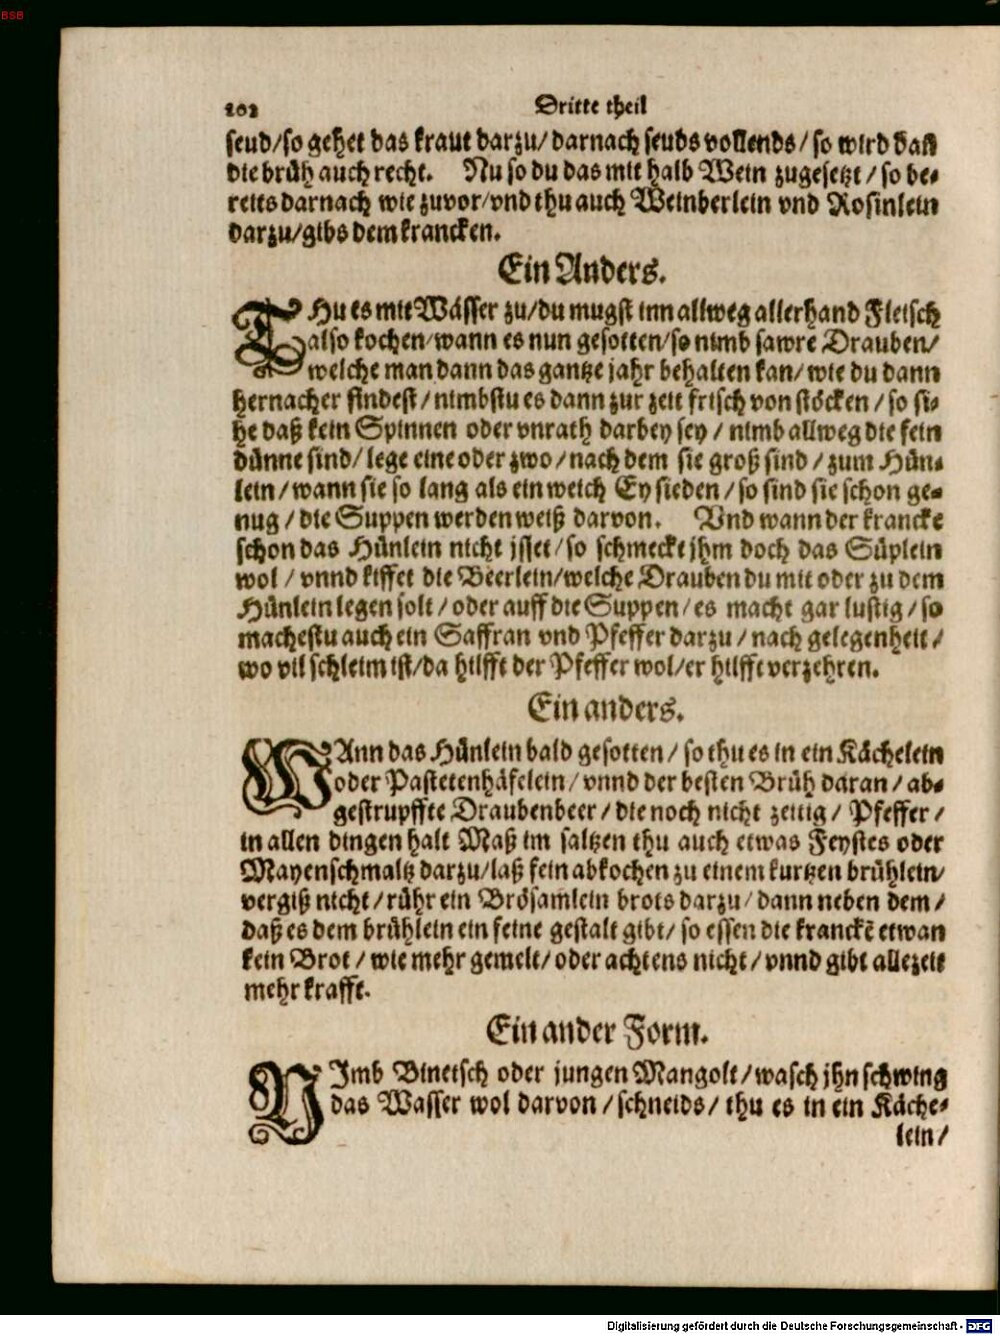 BSB
202 Dritte theil
seud/so gehet das kraut darzu/darnach seuds vollends/so wird daß
die brüh auch recht. Nu so du das mit halb Wein zugesetzt/so be-
reits darnach wie zuvor/vnd thu auch Weinberlein vnd Rosinlein
darzu/gibs dem krancken.
Ein Anders.
THu es mit Wässer zu/du mugst inn allweg allerhand Fleisch
also kochen/wann es nun gesotten/so nimb sawrẽ Drauben/
welche man dann das gantze jahr behalten kan/wie du dann
hernacher findest/nimbstu es dann zur zeit frisch von stöcken/so si-
he daß kein Spinnen oder vnrath darbey sey/nimb allweg die fein
dünne sind/lege eine oder zwo/nach dem sie groß sind/zum Hün-
lein/wann sie so lang als ein weich Ey sieden/so sind sie schon ge-
nug/die Suppen werden weiß darvon. Vnd wann der krancke
schon das Hünlein nicht isset/so schmeckt jhm doch das Süplein
wol/vnnd kiffet die Beerlein/welche Drauben du mit oder zu dem
Hünlein legen solt/oder auff die Suppen/es macht gar lustig/so
machestu auch ein Saffran vnd Pfeffer darzu/nach gelegenheit/
wo vil schleim ist/da hilfft der Pfeffer wol/er hilfft verzehren.
Ein anders.
WAnn das Hünlein bald gesotten/so thu es in ein Kächelein
oder Pastetenhäfelein/vnnd der besten Brüh daran/ab-
gestrupffte Draubenbeer/die noch nicht zeitig/Pfeffer/
in allen dingen halt Maß im saltzen thu auch etwas Feystes oder
Mayenschmaltz darzu/laß fein abkochen zu einem kurtzen brühlein/
vergiß nicht/rühr ein Brösamlein brots darzu/dann neben dem/
daß es dem brühlein ein feine gestalt gibt/so essen die kranckẽ etwan
kein Brot/wie mehr gemelt/oder achtens nicht/vnnd gibt allezeit
mehr krafft.
Ein ander Form.
NImb Binetsch oder jungen Mangolt/wasch jhn schwing
das Wasser wol darvon/schneids/thu es in ein Käche-
lein/
Digitalisierung gefördert durch die Deutsche Forschungsgemeinschaft - DFG